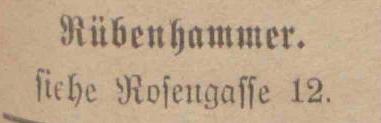 Rübenhammer.
ſiehe Roſengaſſe 12.